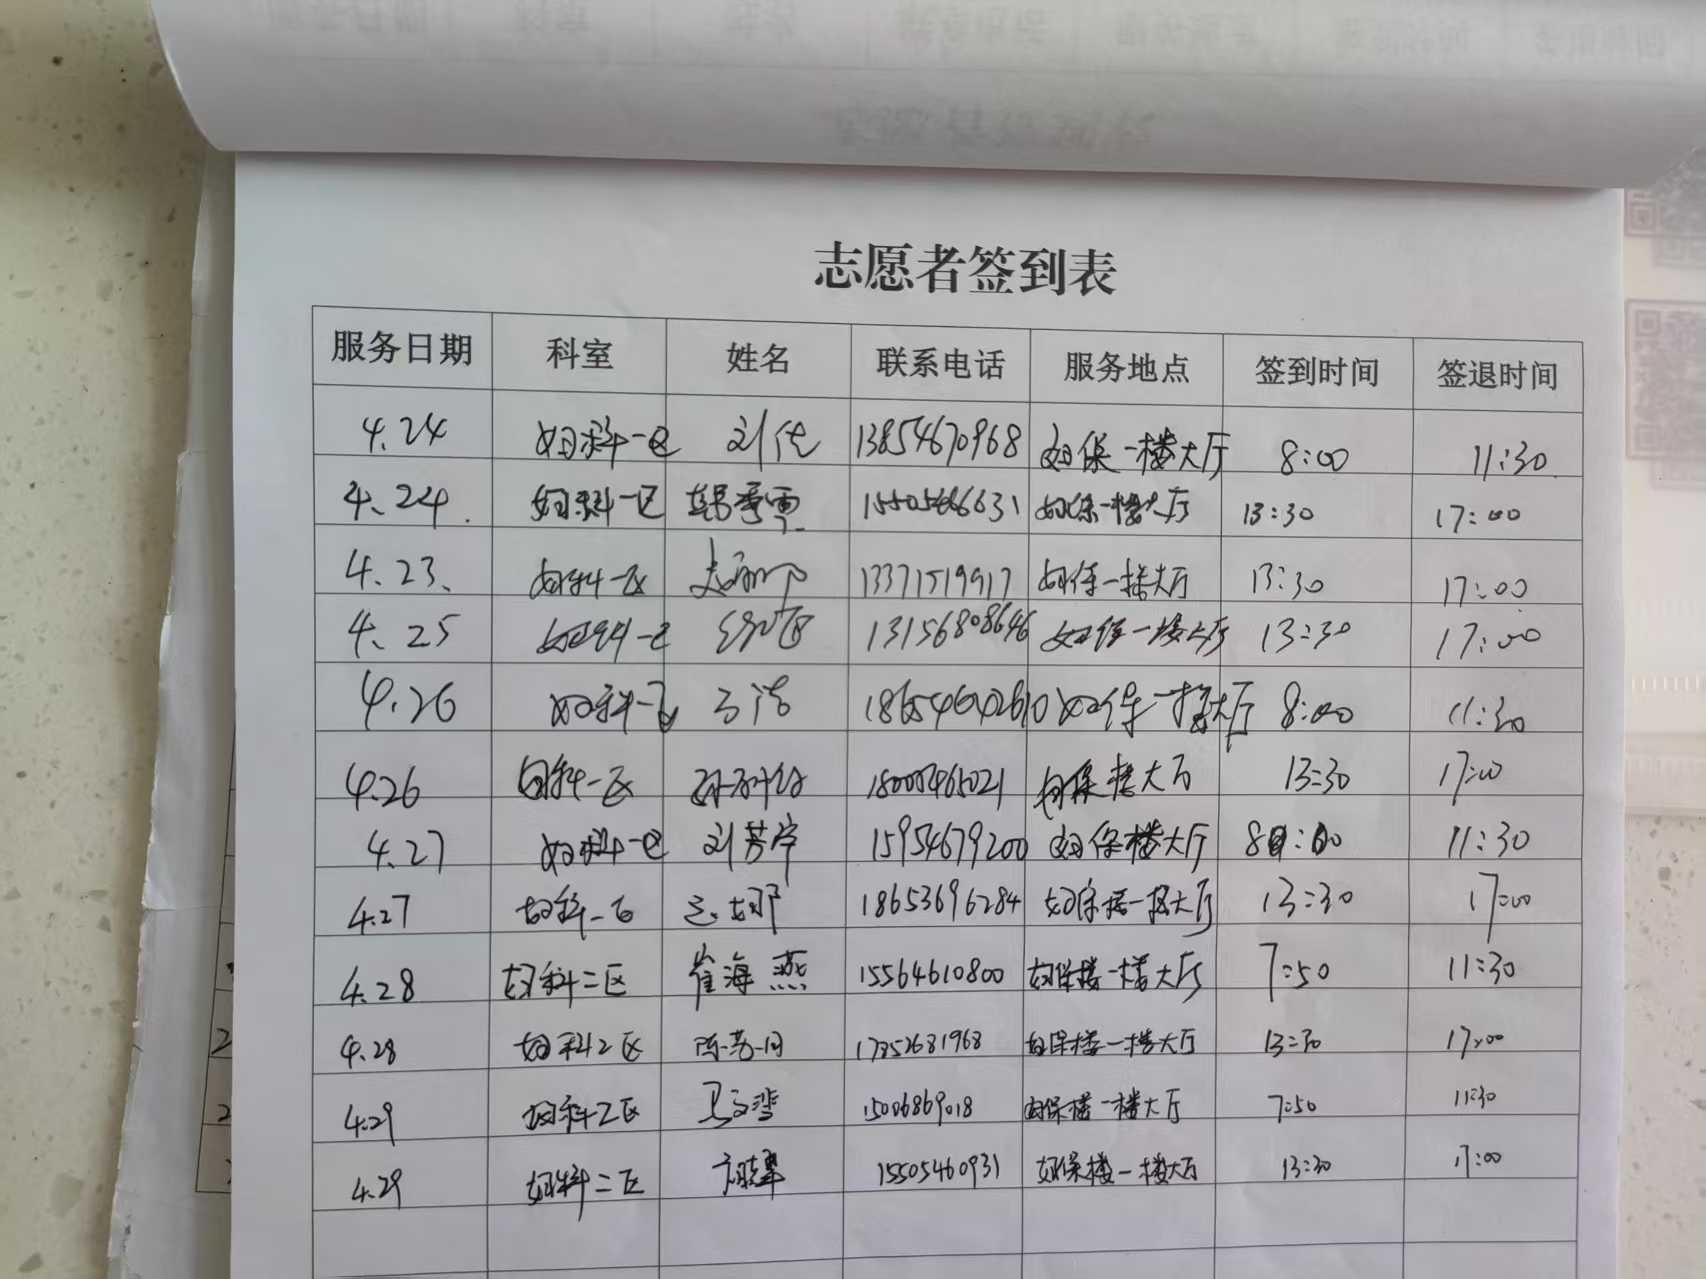 志愿者签到表
服务日期 科室 姓名 联系电话 服务地点 签到时间 签退时间
4.24 妇科一区 刘 13854670968 妇保一楼大厅 8:00 11:30
4.24. 妇科一区 韩雪 妇保一楼大厅 13:30 17:00
4.23. 妇科一区 13371519917 妇保一楼大厅 13:30 17:00
4.25 妇科一区 13156808646 妇保一楼大厅 13:30 17:00
4.26 妇科一区 洁 妇保一楼大厅 8:00 11:30
4.26 妇科一区 妇保楼大厅 13:30 17:00
4.27 妇科一区 刘芳 15954679200 妇保楼大厅 11:30
4.27 妇科一区 娜 18653696284 妇保楼一楼大厅 13:30 17:00
4.28 妇科二区 崔海燕 15564610800 妇保楼一楼大厅 7:50 11:30
4.28 妇科2区 妇保楼一楼大厅 13:30 17:00
4.29 妇科2区 15006869018 妇保楼一楼大厅 7:50 11:30
4.29 妇科二区 15505460931 妇保楼一楼大厅 13:30 17:00